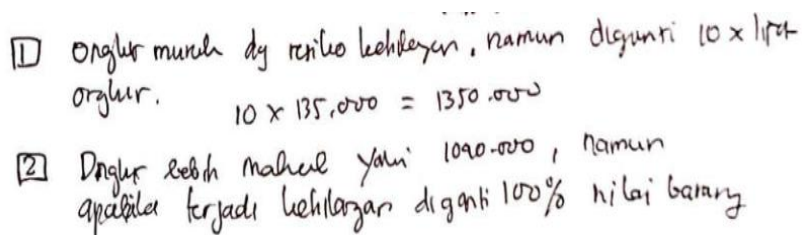 1 Ongkir murah dg resiko kehilangan, namun diganti 10 x lipat
ongkir.
10 x 135.000 = 1350.000
2 Ongkir lebih mahal yaitu 1090.000, namun
apabila terjadi kehilangan diganti 100% nilai barang